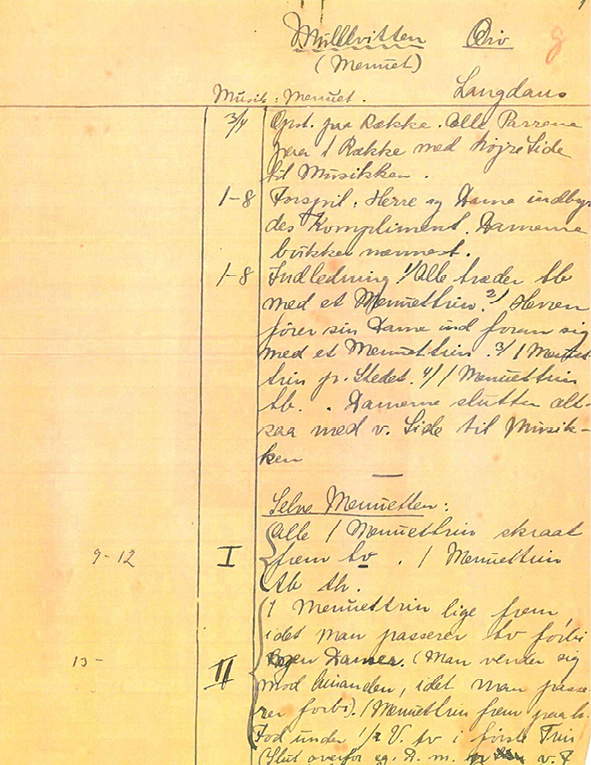 (Menuet)
Musik: Menuet. Langdans
3/4 Opst. paa Række. Alle Parrene
paa 1 Række med højre Side
til Musikken.
1-8 Forspil. Herre og Dame indby
des Kompliment. Damerne
bukker nærmest.
1-8 Indledning 1/ Alle træder tb
med et Menuettrin. 2/ Herren
fører sin Dame ind foran sig
med et Menuettrin. 3/ 1 Menuet
trin p. Stedet. 4/ 1 Menuettrin
tb. . Damerne slutter alt-
saa med v. Side til Musik-
ken
Selve Menuetten:
Alle 1 Menuettrin skraat
9-12 I frem tv . 1 Menuettrin
tb th.
1 Menuettrin lige frem
idet man passerer tv forbi
13- egen Damer. (Man vender sig
II mod hinanden, idet man passe
rer forbi). 1 Menuettrin frem paa h.
Fod under 1/2 V. tv i første Trin
(Slut overfor eg. D. m. v. F